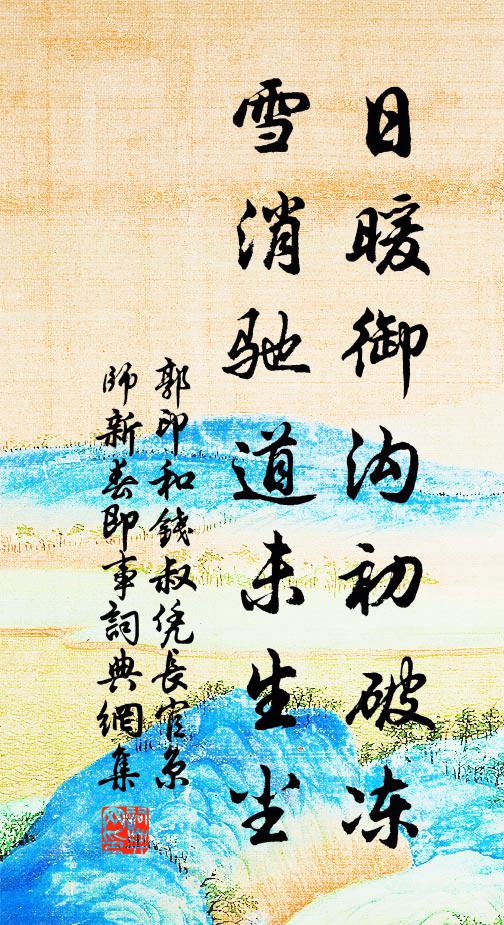 日暖御沟初破冻
雪消驰道未生尘
郭印和錢叔凭長官京
師新春即事詞典網集